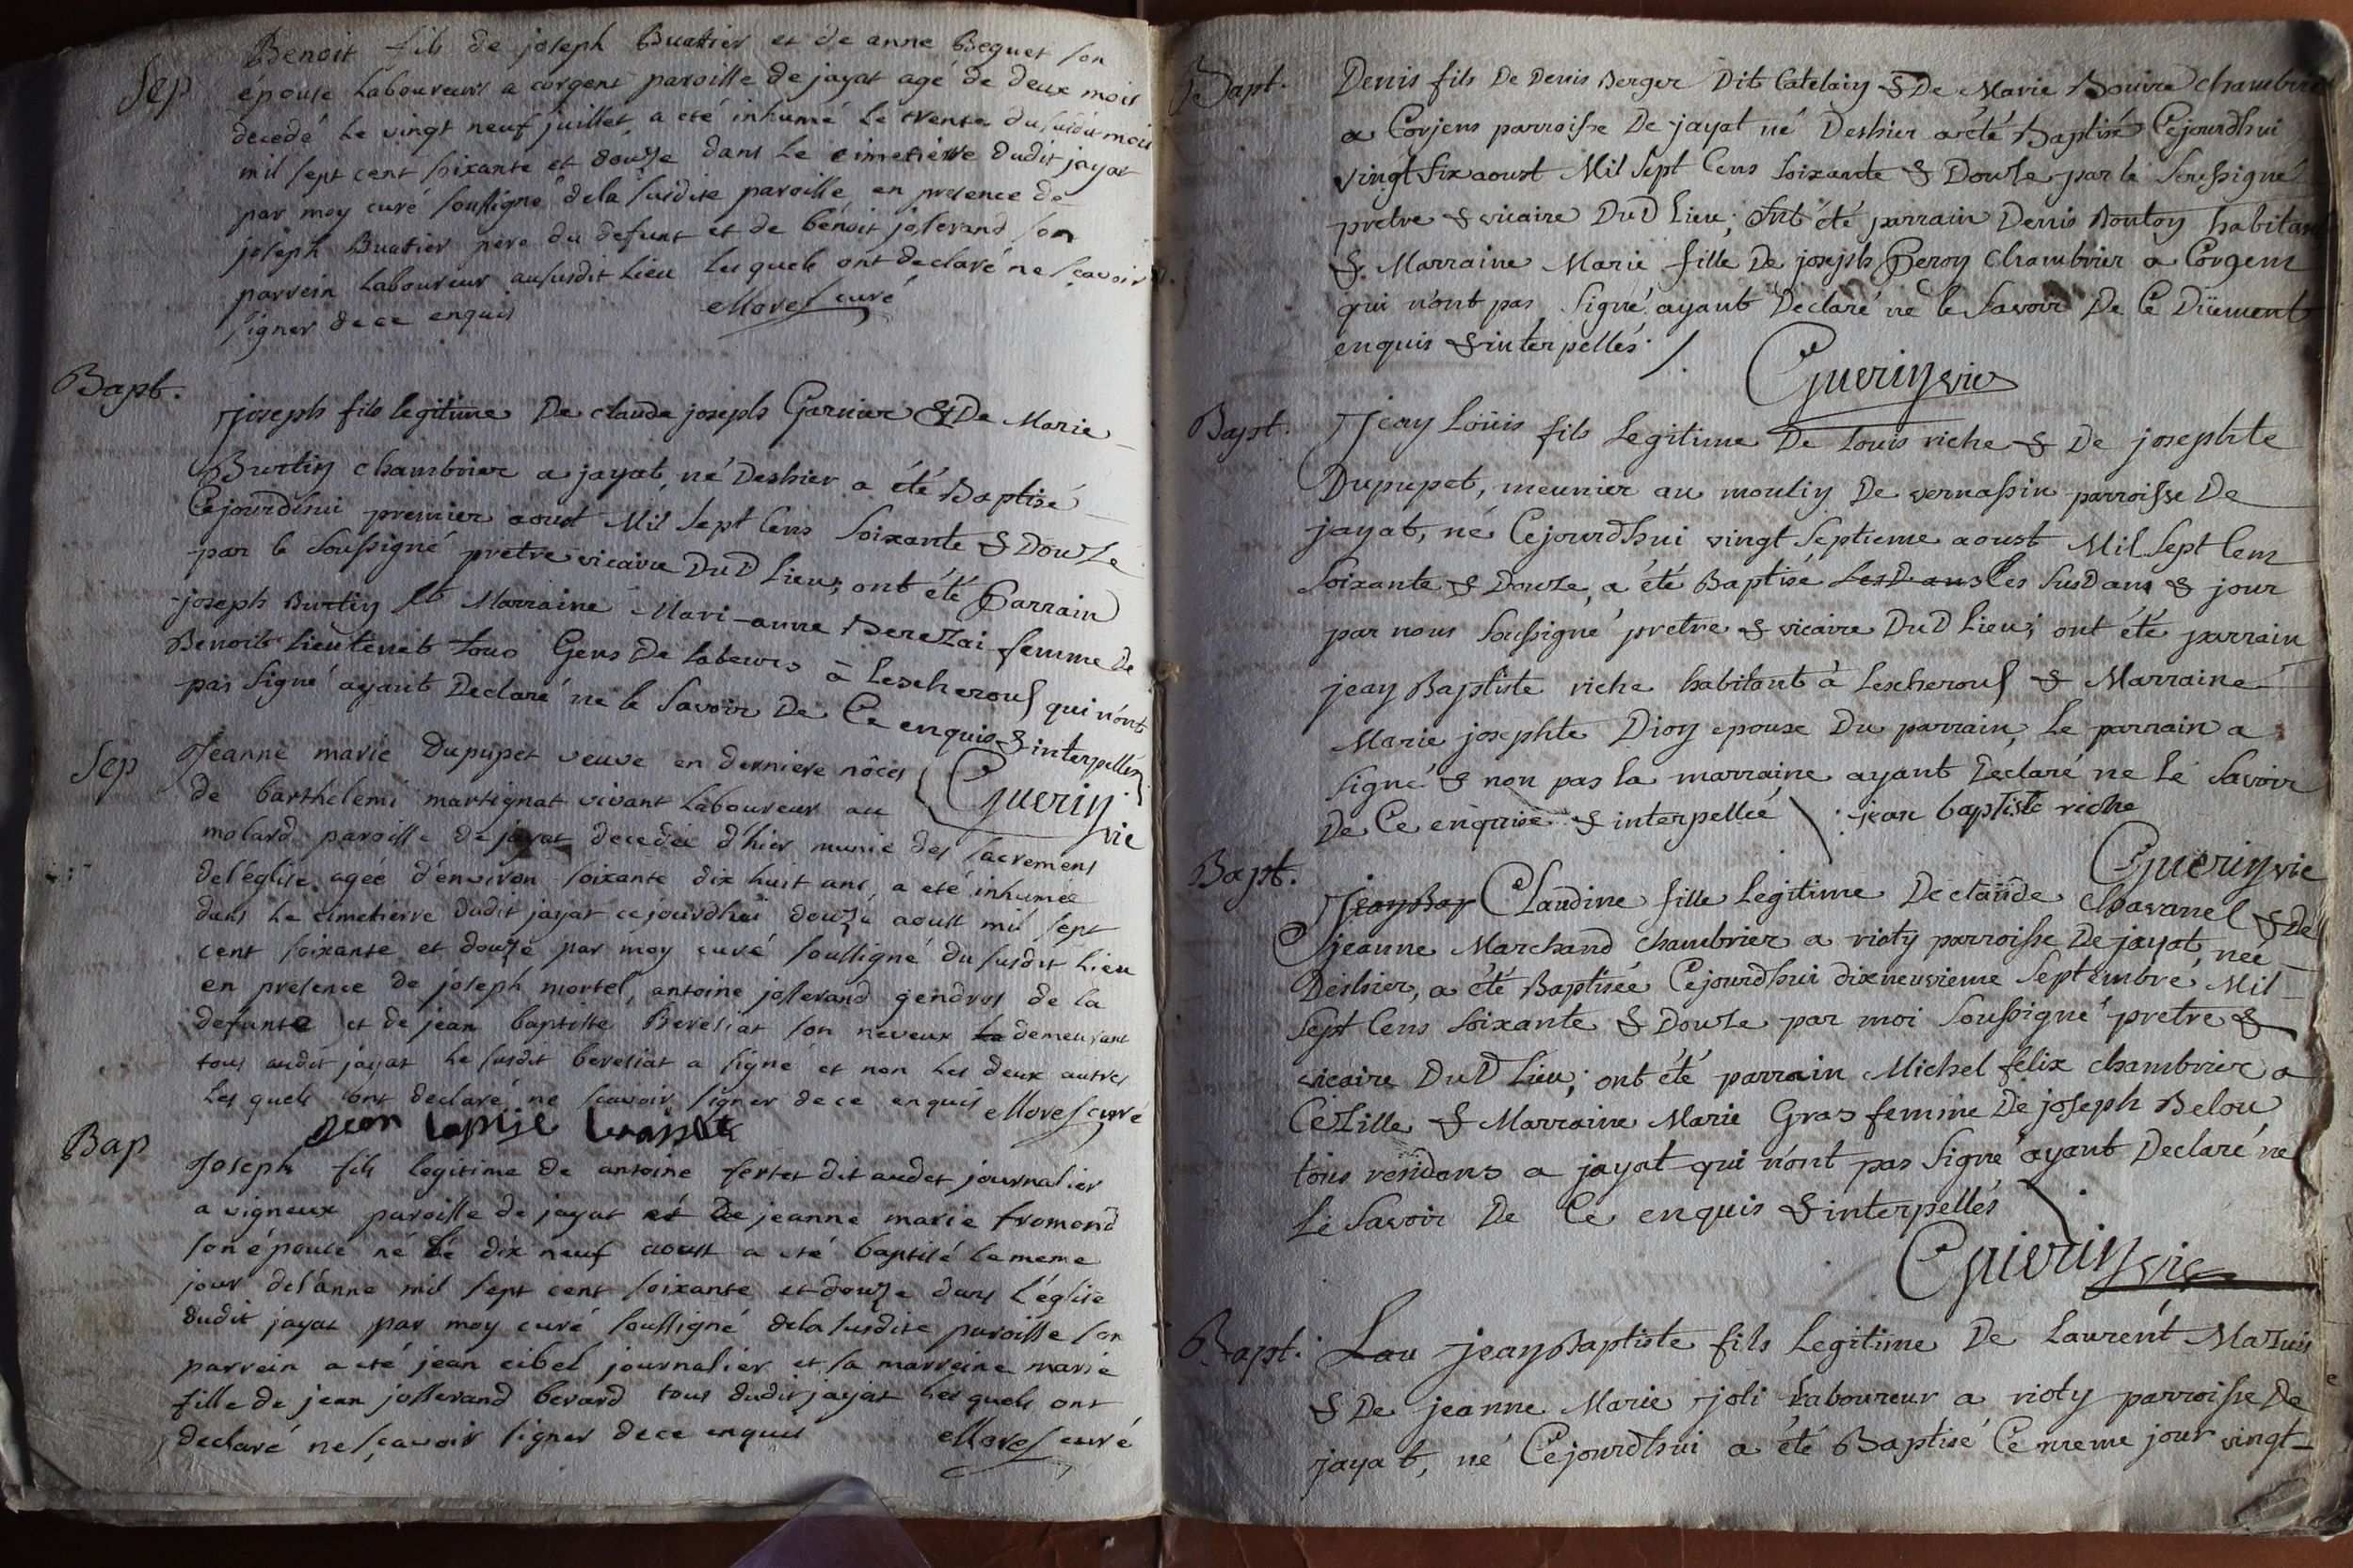 Sep
Benoit fils de joseph Buatier et de anne Beguet son
épouse Laboureurs a corgent paroisse de jayat agé de deux mois
decedé le vingt neuf juillet a eté inhumé Le trente du susdit mois
mil sept cent soixante et douze dans Le cimetierre dudit jayat
par moy curé soussigné dela susdite paroisse en presence de
joseph Buatier pere du defunt et de benoit josserand son
parrein Laboureur au susdit Lieu Lesquels ont declaré ne sçavoir
signer de ce enquis Morel curé
Bapt.
joseph fils legitime De claude joseph Garnier & De Marie
Burtin chambrier a jayat, né Deshier a été Baptisé
Cejourdhui premier aoust Mil Sept Cens Soixante & Douze
par le Soussigné pretre vicaire DuD Lieu; ont été Parrain
joseph Burtin Et Marraine Mari-anne Berezai femme de
Benoit Lieutenet tous Gens De Labeurs à Lescherous qui n'ont
pas Signé ayant Declaré ne le Savoir De Ce enquis & interpellés
Guerin vic
Sep
Jeanne marie Dupupet veuve en derniere nôces
de barthelemi martignat vivant Laboureur au
molard paroisse de jayat decedée d'hier munie des sacremens
del'église agée d'environ soixante dix huit ans, a eté inhumée
dans Le cimetierre dudit jayat ce jourdhui douze aoust mil sept
cent soixante et douze par moy curé soussigné du susdit Lieu
en presence de joseph mortel, antoine josserand gendres de la
defunte et de jean baptiste Beresiat son neveux demeurant
tous audit jayat Le susdit beresiat a signé et non Les deux autres
Lesquels ont declaré ne scavoir signer de ce enquis Morel curé
Bap
Joseph fils legitime de antoine fertet dit audet journalier
a vigneux paroisse de jayat et De jeanne marie fromond
son épouse né Le dix neuf aoust a eté baptisé le meme
jour del'anne mil sept cent soixante et douze dans L'église
dudit jayat par moy curé soussigné dela susdite paroisse son
parrein a eté jean cibel journalier et sa marreine marie
fille de jean josserand berard tous dudit jayat Lesquels ont
declaré ne sçavoir signer de ce enquis Morel curé
Bapt.
Denis fils De Denis Berger Dit Catelain & De Marie Bouvre chambrier
a Corjens parroisse De jayat né Deshier a été Baptisé Cejourdhui
vingt six aoust Mil Sept Cens Soixante & Douze par le Soussigné
pretre & vicaire DuD Lieu; ont été parrain Denis Bonton habitant
& Marraine Marie fille De joseph Peron Chambrier a Corgens
qui n'ont pas Signé ayant Declaré ne le Savoir De Ce Dûement
enquis & interpellés
Guerin vic
Bapt.
Jean Loüis fils Legitime De Louis riche & De josephte
Dupupet, meunier au moulin De vernassin parroisse De
jayat, né Cejourdhui vingt Septieme aoust Mil Sept Cens
Soixante & Douze, a été Baptisé Les D ans les SusD ans & jour
par nous Soussigné pretre & vicaire DuD Lieu; ont été parrain
jean Baptiste riche habitant à Lescherous & Marraine
Marie josephte Dion epouse Du parrain, Le parrain a
Signé & non pas la marraine ayant Declaré ne le Savoir
De Ce enquise & interpellée jean baptiste riche
Guerin vic
Bapt.
Jean Bap Claudine fille Legitime De claüde Chavanel & De
jeanne Marchand chambrier a rioty parroisse De jayat, née
Deshier, a été Baptisée Cejourdhui dixneuvieme Septembre Mil
Sept Cens Soixante & Douze par moi Soussigné pretre &
vicaire DuD Lieu; ont été parrain Michel felix chambrier a
Cézille & Marraine Marie Gras femme De joseph Belou
tous residens a jayat qui n'ont pas Signé ayant Declaré ne
Le Savoir De Ce enquis & interpellés
Guerin vic
Bapt.
Lau jean Baptiste fils Legitime De Laurent Mazuis
& De jeanne Marie joli Laboureur a rioty parroisse De
jayat, né Cejourdhui a été Baptisé Ce meme jour vingt-